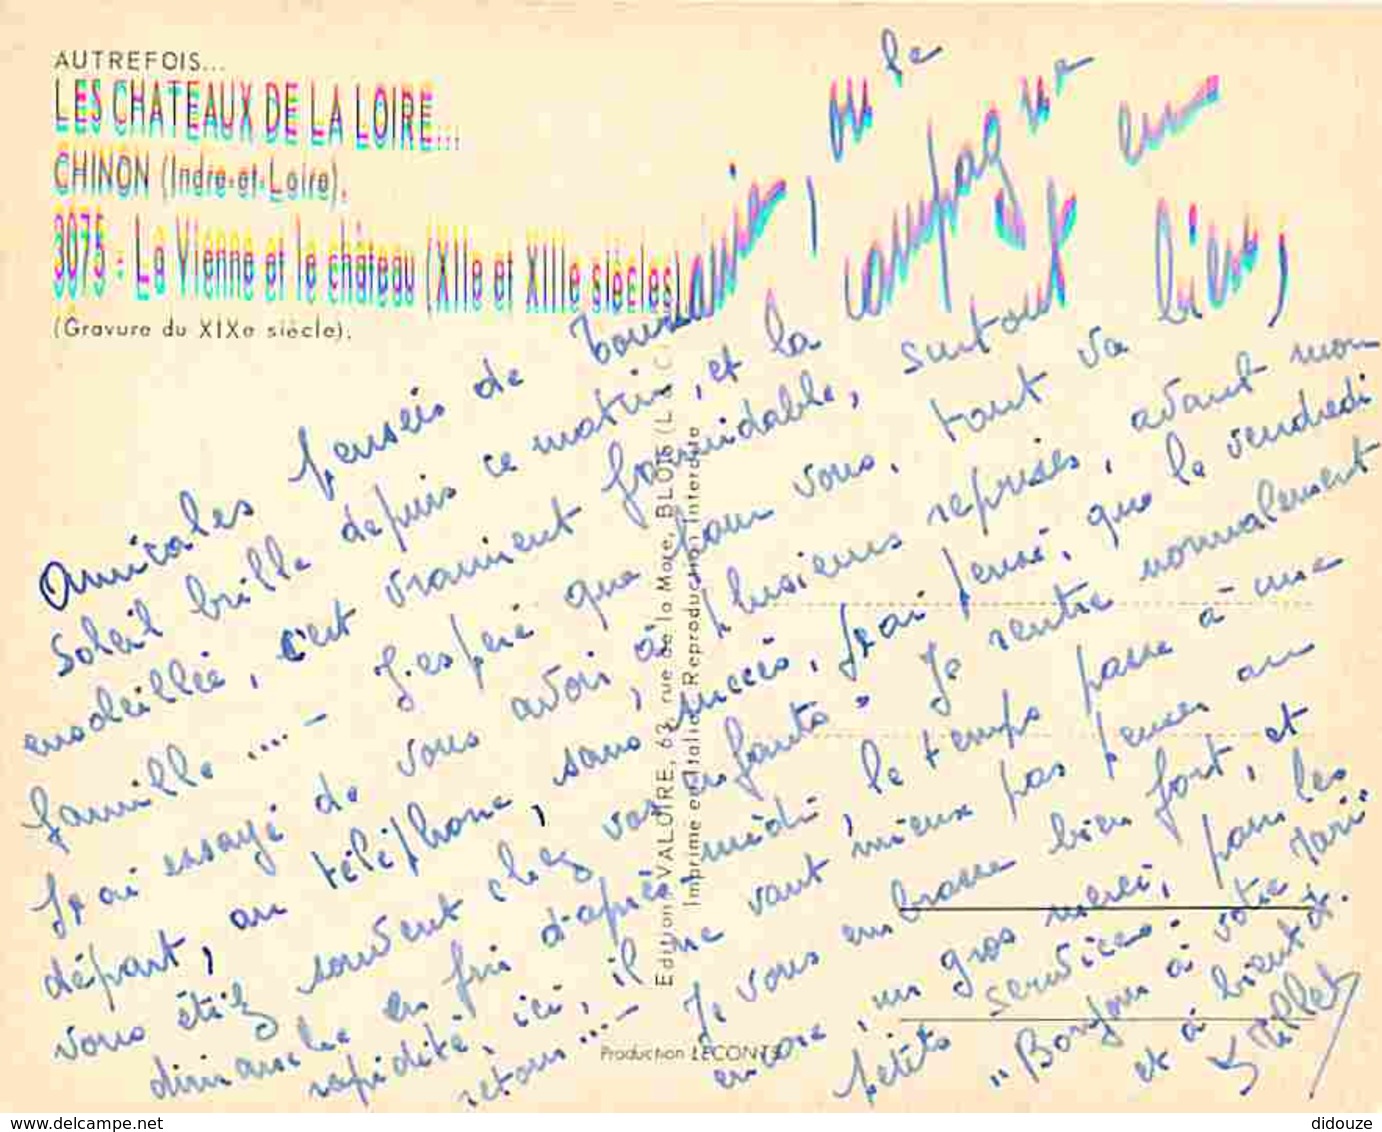 AUTREFOIS...
LES CHATEAUX DE LA LOIRE...
CHINON (Indre-et-Loire).
3075 - La Vienne et le château (XIIe et XIIIe siècles)
(Gravure du XIXe siècle).
Amicales pensées de Touraine, ou le
soleil brille depuis ce matin, et la campagne
ensoleillée, c'est vraiment formidable, surtout en
famille....- J'espère que pour vous, tout va bien,
J'ai essayé de vous avoir, à plusieurs reprises, avant mon
départ, au téléphone, sans succès, j'ai pensé, que le vendredi
vous étiez souvent chez vos enfants. Je rentre normalement
dimanche en fin d'après midi, le temps passe à une
rapidité, ici, il ne vaut mieux pas penser au
retour...- Je vous embrasse bien fort, et
encore, un gros merci, pour les
petits services.
"Bonjour à votre Mari"
et à bientôt.
Edition VALOIRE, 63, rue de la More, BLOIS (L. & C.)
Imprimé en Italie - Reproduction Interdite
Production LECONTE
didouze